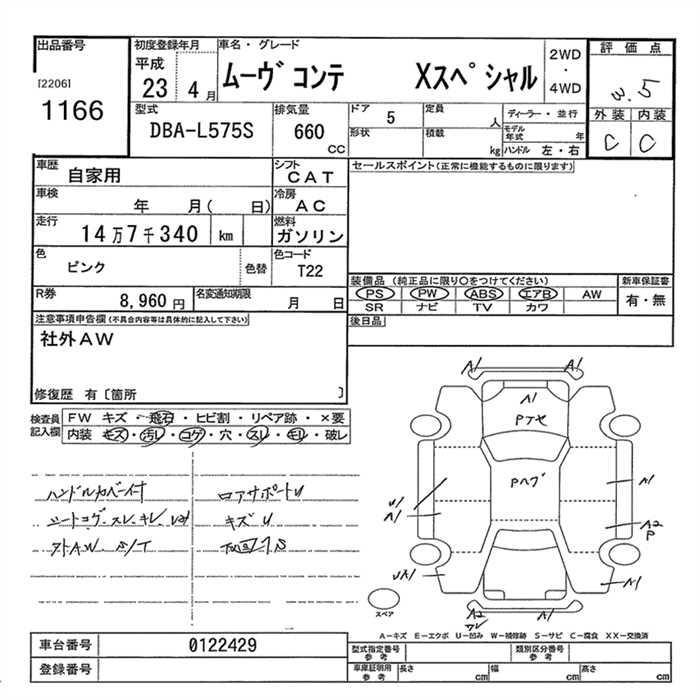 出品番号
[2206]
1166
初度登録年月
平成
23 4 月
車名・グレード
ムーヴ コンテ Xスペシャル
2WD
・
4WD
評価点
3.5
外装 内装
C C
型式
DBA-L575S
排気量
660
CC
ドア 5
定員 人
形状
積載 kg
ディーラー・並行
モデル年式 年
ハンドル 左・右
車歴 自家用
シフト CAT
車検 年 月( 日)
冷房 AC
走行 14万7千340 km
燃料 ガソリン
色 ピンク 色替
色コード T22
R券 8,960円
名変通知期限 月 日
セールスポイント(正常に機能するものに限ります)
装備品 (純正品に限り○をつけてください)
PS PW ABS エアB AW
SR ナビ TV カワ
新車保証書
有・無
後日品
注意事項申告欄(不具合内容等は具体的に記入して下さい)
社外AW
修復歴 有〔箇所 〕
検査員記入欄
FW キズ・飛石・ヒビ割・リペア跡・×要
内装 キズ・汚レ・コゲ・穴・スレ・キレ・破レ
ハンドルカバー付
シートコゲ.スレ.キレ
アトAW S/T
ロアサポートU
キズU
A1 A1
A1
Pフセ
Pハゲ
A1
U1
A1
A2
P
UA1
A1
A2
ワレ
スペア
A-キズ E-エクボ U-凹み W-補修跡 S-サビ C-腐食 XX-交換済
車台番号 0122429
登録番号
型式指定番号 参考
類別区分番号 参考
車庫証明用 参考 長さ cm 幅 cm 高さ cm